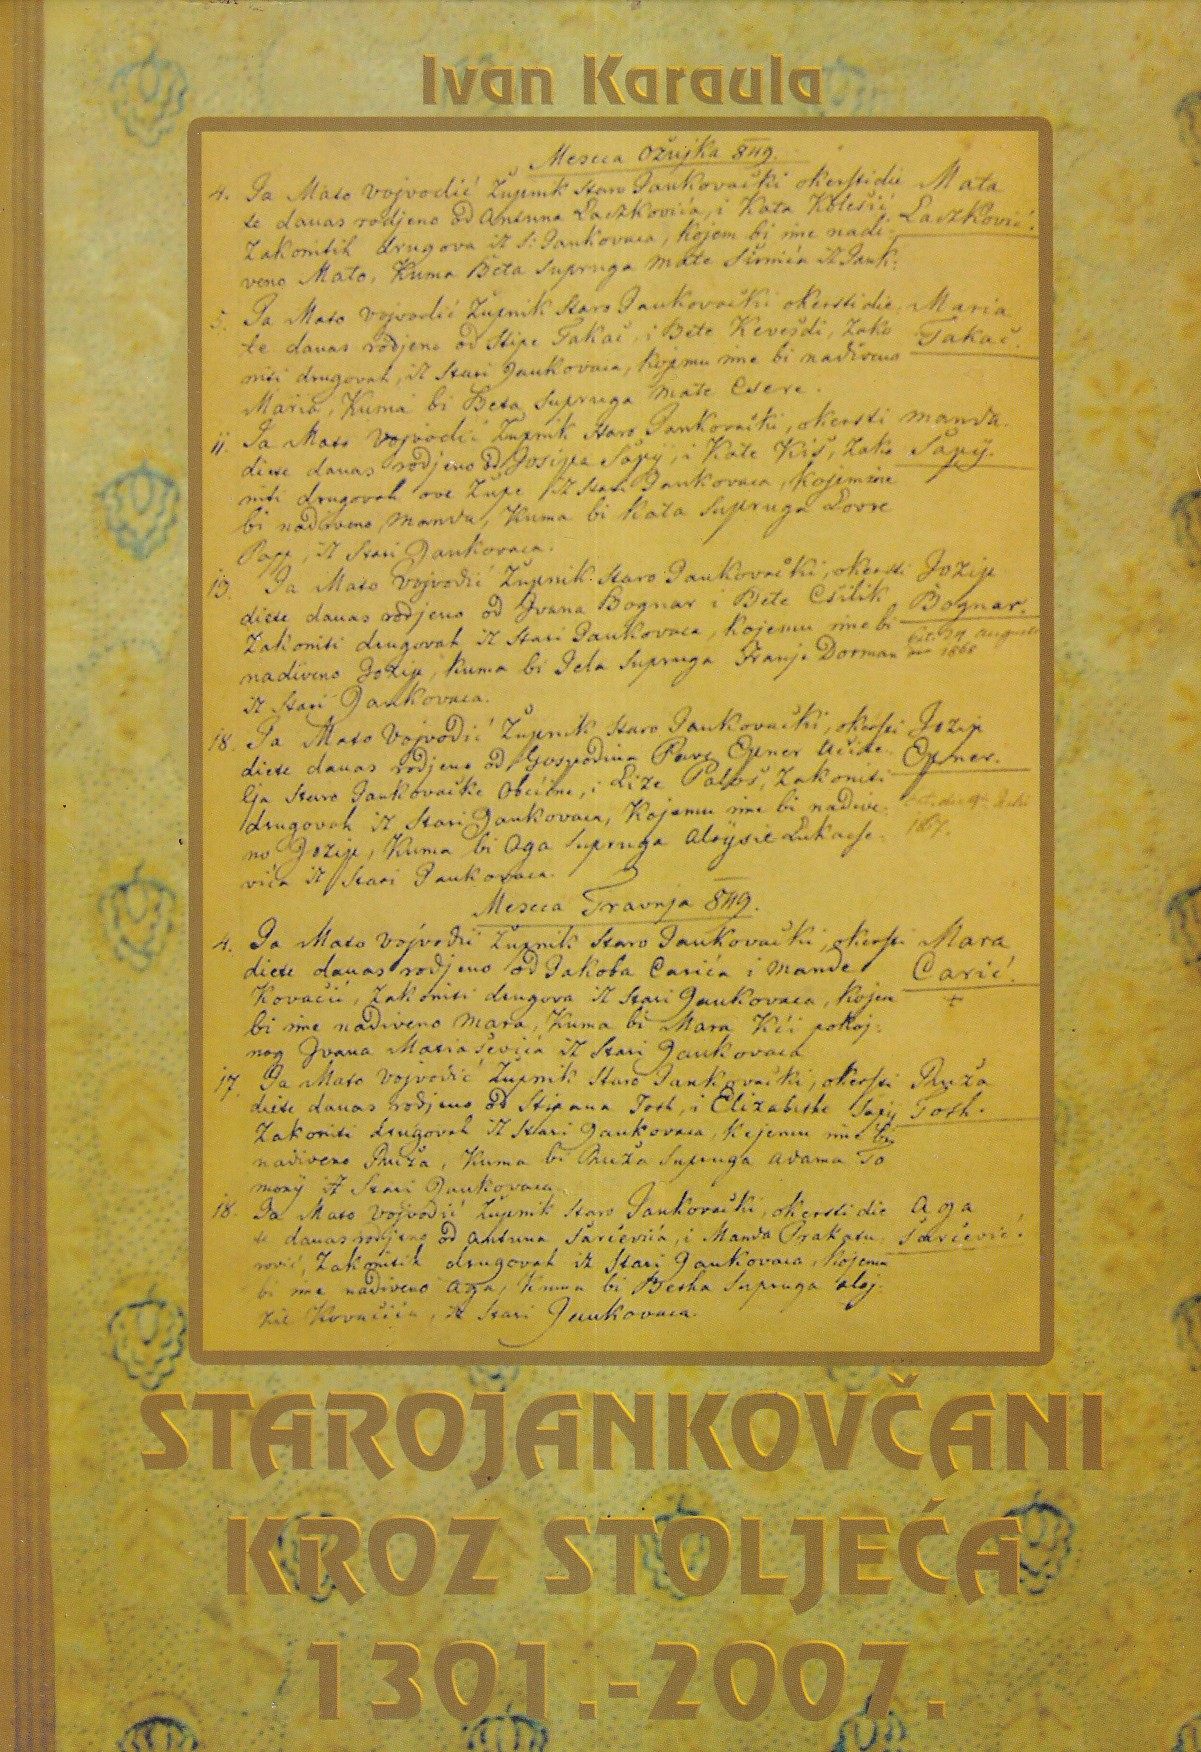 Ivan Karaula
Meseca Ožujka 849.
4. Ja Mato Vojvodić Župnik Staro Jankovački okerstidie Mata
te danas rodjeno od Antuna Laczkovića, i Kata
Laczković.
Zakonitih drugova iz S. Jankovaca, kojem bi ime nadi-
veno Mato, Kuma Beta supruga Mate iz Jank.
5. Ja Mato Vojvodić Župnik Staro Jankovački okerstidie Maria
te danas rodjeno od Stipe Takač, i Bete Kevešdi, Zako
Takač.
niti drugovah, iz Stari Jankovaca, kojemu ime bi nadiveno
Maria, Kuma bi Beta supruga Mate Csere.
11. Ja Mato Vojvodić Župnik Staro Jankovački, okersti Manda
diete danas rodjeno od Josipa Sapy, i Kate Kiš, Zako
Sapy.
niti drugovah ove Župe iz Stari Jankovaca, kojem ime
bi nadiveno Manda, Kuma bi Kata supruga Lovre
Papp, iz Stari Jankovaca.
13. Ja Mato Vojvodić Župnik Staro Jankovački, okersti Jozip
diete danas rodjeno od Ivana Bognar i Bete Csilik
Bognar.
Zakoniti drugovah iz Stari Jankovaca, kojemu ime bi
1868
nadiveno Jozip, kuma bi Jela supruga Franje Dorman
iz Stari Jankovaca.
18. Ja Mato Vojvodić Župnik Staro Jankovački, okersti Jozip
diete danas rodjeno od Gospodina Pave Epner Učite-
Epner.
lja Staro Jankovačke Obćine, i Lize Paloš, Zakoniti
drugovah iz Stari Jankovaca, Kojemu ime bi nadive-
no Jozip, Kuma bi Aga supruga Aloysie Lukacse-
vića iz Stari Jankovaca.
Meseca Travnja 849.
4. Ja Mato Vojvodić Župnik Staro Jankovački, okersti Mara
diete danas rodjeno od Jakoba Carića i Mande
Carić.
Kovačić, Zakoniti drugova iz Stari Jankovaca, Kojem
bi ime nadiveno Mara, Kuma bi Mara Kći pokoj-
nog Ivana iz Stari Jankovaca
17. Ja Mato Vojvodić Župnik Staro Jankovački, okersti Ruža
diete danas rodjeno od Stipana Toth, i Elizabethe Sapy
Toth.
Zakoniti drugovah iz Stari Jankovaca, kojemu ime bi
nadiveno Ruža, Kuma bi Ruža supruga Adama To
mory iz Stari Jankovaca.
18. Ja Mato Vojvodić Župnik Staro Jankovački, okerstidie Aga
te danas rodjeno od Antuna Šarčevića, i Manda
Šarčević.
rović, Zakonitih drugovah iz Stari Jankovaca, kojemu
bi ime nadiveno Aga, Kuma bi Betha supruga Aloj-
zie Kovačića, iz Stari Jankovaca.
STAROJANKOVČANI
KROZ STOLJEĆA
1301.-2007.